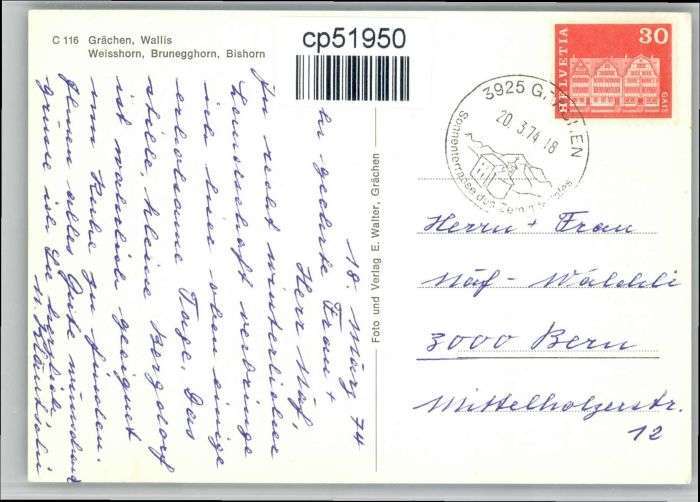 C 116 Grächen, Wallis
Weisshorn, Brunegghorn, Bishorn
cp51950
HELVETIA
30
GAIS
3925 GRÄCHEN
20.3.74-18
Sonnenterrasse des Zermattertales
Foto und Verlag E. Walter, Grächen
18. März 74
Sehr geehrte Frau +
Herr Näf,
In recht winterlicher
Landschaft verbringe
ich hier oben einige
erholsame Tage. Das
stille, kleine Bergdorf
ist wahrlich geeignet
um Ruhe zu finden.
Ihnen alles Gute wünschend
grüsse ich Sie herzlich,
Herrn + Frau
Näf - Wälchli
3000 Bern
Mittelholzerstr.
12